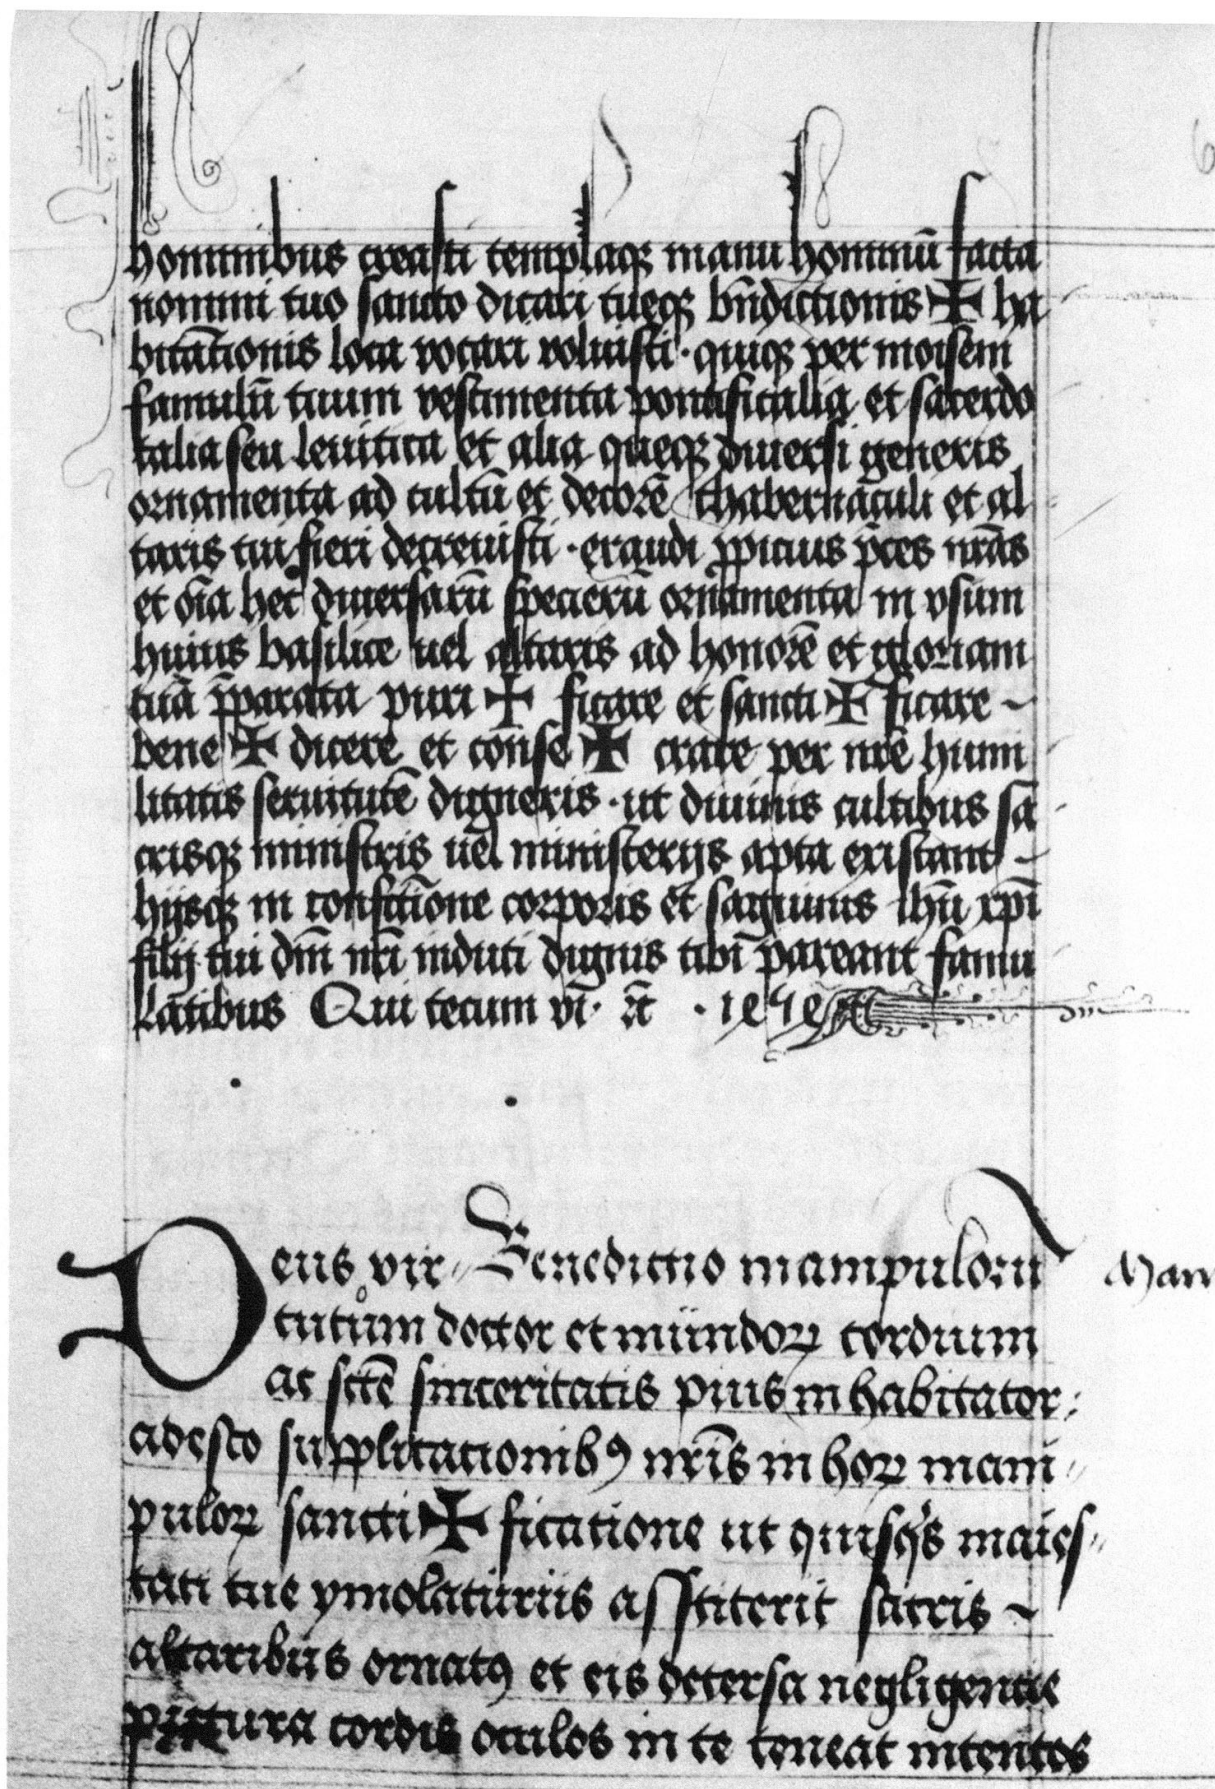 hominibus creasti templaqꝫ manu hominū facta
nomini tuo sancto dicari tueqꝫ bn̄dictionis ✠ ha
bitac̄ionis loca vocari voluisti · quiqꝫ per moisem
famulū tuum vestimenta pontificalia et sacerdo
talia seu leuitica et alia queqꝫ diuersi generis
ornamenta ad cultū et decorē thabernaculi et al
taris tui fieri decreuisti · exaudi ꝓpicius p̄ces nrās
et oīa hec diuersarū specierū ornamenta in vsum
huius basilice uel altaris ad honorē et gloriam
tuā p̄parata puri ✠ ficare et sancti ✠ ficare ~
bene ✠ dicere et conse ✠ crare per nrē humi
litatis seruitutē digneris · ut diuinis cultibus sa
crisqꝫ ministris uel ministerijs apta existant ~
hijsqꝫ in confectīone corporis et sāguinis ihū xp̄i
filij tui dn̄i nr̄i induti dignis tibi pareant famu
lātibus Qui tecum vi · ⁊c̄ · 1515
Deus vir〃 Benedictio manipulorū
tutum doctor et mundoꝝ cordium
ac sctē sinceritatis pius inhabitator ·
adesto supplicacionibꝯ nrīs in hoꝝ mani〃
puloꝝ sancti ✠ ficatione ut quisqͥs maies〃
tati tue ymolaturus assstiterit sacris ~
altaribus ornatꝯ et eis detersa negligencie
cordis oculos in te teneat intentos